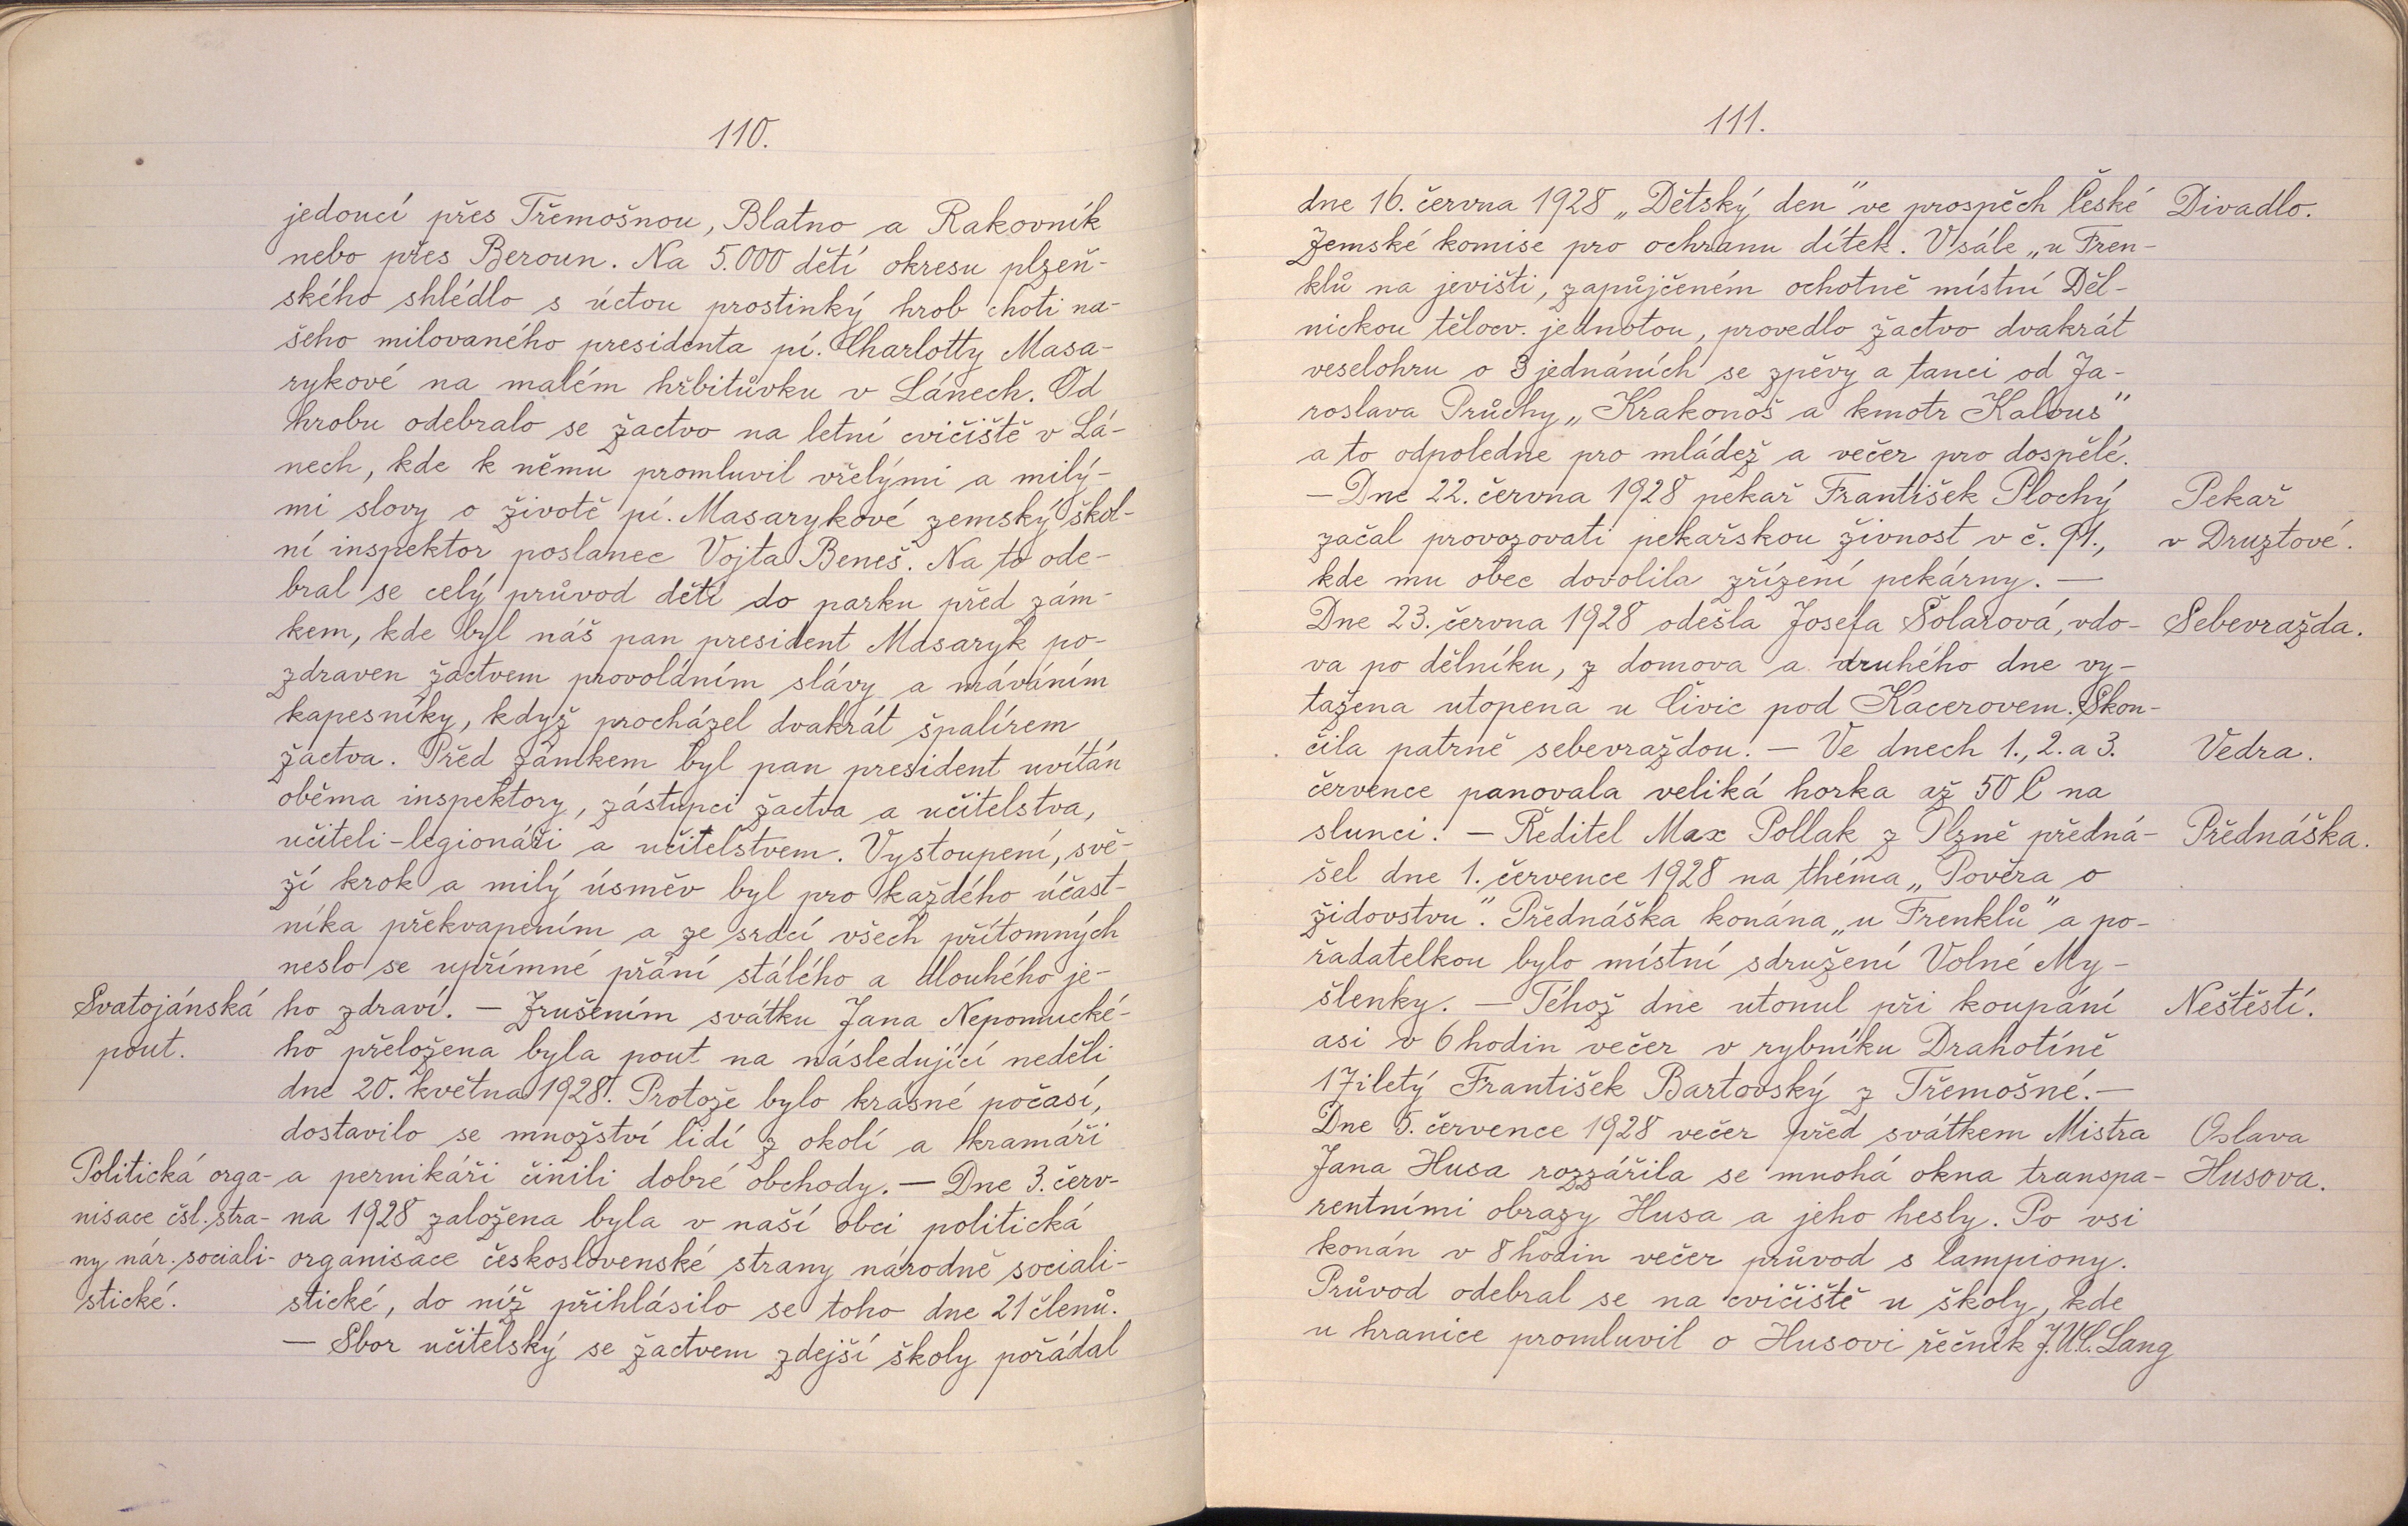 110.
jedoucí přes Třemošnou, Blatno a Rakovník
nebo přes Beroun. Na 5.000 dětí okresu plzeň-
ského shlédlo s úctou prostinký hrob choti na-
šeho milovaného presidenta pí. Charlotty Masa-
rykové na malém hřbitůvku v Lánech. Od
hrobu odebralo se žactvo na letní cvičiště v Lá-
nech, kde k němu promluvil vřelými a milý-
mi slovy o životě pí. Masarykové zemský škol-
ní inspektor poslanec Vojta Beneš. Na to ode-
bral se celý průvod dětí do parku před zám-
kem, kde byl náš pan president Masaryk po-
zdraven žactvem provoláním slávy a máváním
kapesníky, když procházel dvakrát špalírem
žactva. Před zámkem byl pan president uvítán
oběma inspektory, zástupci žactva a učitelstva,
učiteli-legionáři a učitelstvem. Vystoupení, svě-
ží krok a milý úsměv byl pro každého účast-
níka překvapením a ze srdcí všech přítomných
neslo se upřímné přání stálého a dlouhého je-
Svatojánská ho zdraví. — Zrušením svátku Jana Nepomucké-
pout. ho přeložena byla pout na následující neděli
dne 20. května 1928. Protože bylo krásné počasí,
dostavilo se množství lidí z okolí a kramáři
Politická orga- a pernikáři činili dobré obchody. — Dne 3. červ-
nisace čsl. stra- na 1928 založena byla v naší obci politická
ny nár. sociali- organisace československé strany národně sociali-
stické. stické, do níž přihlásilo se toho dne 21 členů.
— Sbor učitelský se žactvem zdejší školy pořádal
111.
dne 16. června 1928 „Dětský den" ve prospěch České Divadlo.
zemské komise pro ochranu dítek. V sále „u Fren-
klů na jevišti, zapůjčeném ochotně místní Děl-
nickou tělocv. jednotou, provedlo žactvo dvakrát
veselohru o 3 jednáních se zpěvy a tanci od Ja-
roslava Průchy „Krakonoš a kmotr Kalous"
a to odpoledne pro mládež a večer pro dospělé.
— Dne 22. června 1928 pekař František Plochý Pekař
začal provozovati pekařskou živnost v č. 91., v Druztové.
kde mu obec dovolila zřízení pekárny. —
Dne 23. června 1928 odešla Josefa Šolarová, vdo- Sebevražda.
va po dělníku, z domova a druhého dne vy-
tažena utopena u Čivic pod Kacerovem. Skon-
čila patrně sebevraždou. — Ve dnech 1., 2. a 3. Vedra.
července panovala veliká horka až 50 C na
slunci. — Ředitel Max Pollak z Plzně předná- Přednáška.
šel dne 1. července 1928 na théma „Pověra o
židovstvu". Přednáška konána „u Frenklů" a po-
řadatelkou bylo místní sdružení Volné My-
šlenky. — Téhož dne utonul při koupání Neštěstí.
asi v 6 hodin večer v rybníku Drahotíně
17iletý František Bartovský z Třemošné. —
Dne 5. července 1928 večer před svátkem Mistra Oslava
Jana Husa rozzářila se mnohá okna transpa- Husova.
rentními obrazy Husa a jeho hesly. Po vsi
konán v 8 hodin večer průvod s lampiony.
Průvod odebral se na cvičiště u školy, kde
u hranice promluvil o Husovi řečník J. Ul. Lang